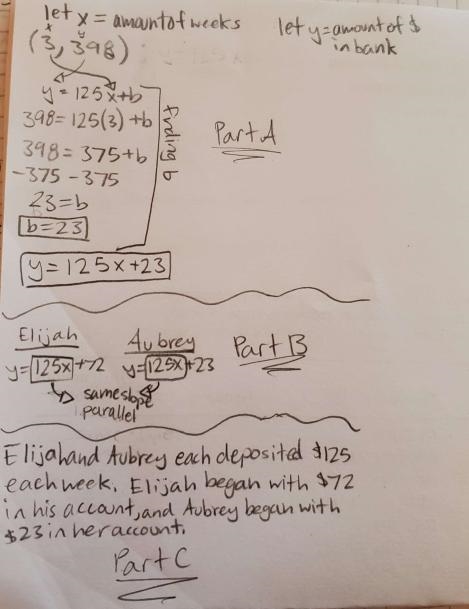 let x = amount of weeks
let y = amount of $
in bank
x y
(3, 398)
y = 125x+b
398 = 125(3) + b
398 = 375 + b
-375 -375
23 = b
b = 23
finding b
y = 125x + 23
Part A
Elijah
y = 125x + 72
Aubrey
y = 125x + 23
same slope
parallel
Part B
Elijah and Aubrey each deposited $125
each week. Elijah began with $72
in his account, and Aubrey began with
$23 in her account.
Part C